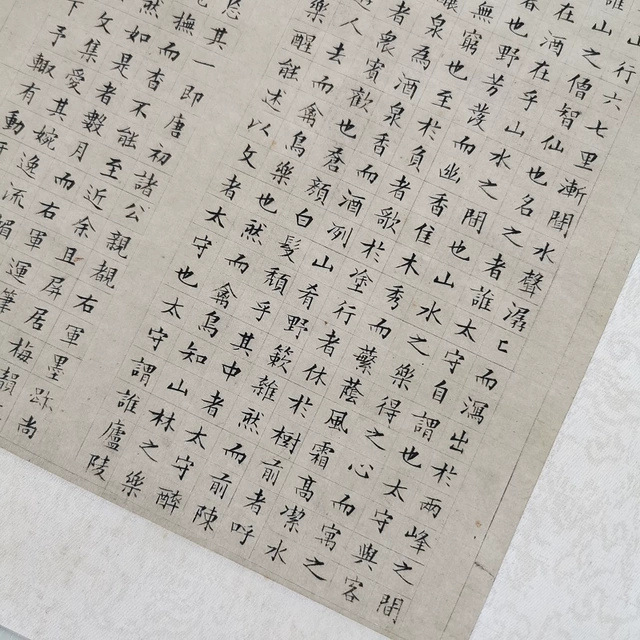 山行六七里漸聞水聲潺〻而瀉出於兩峰之間
誰山之僧智仙也名之者誰太守自謂也太守與客
在酒在乎山水之間也山水之樂得之心而寓之
春也野芳發而幽香佳木秀而蘩蔭風霜高潔水
無窮也至於負者歌於塗行者休於樹前者呼
釀泉為酒泉香而酒冽山肴野蔌雜然而前陳
者衆賓歡也蒼顏白髮頹乎其中者太守醉
人去而禽鳥樂也然而禽鳥知山林之樂
樂醒能述以文者太守也太守謂誰廬陵
其一即唐初諸公親觀右軍墨跡尚
撫而杳不能至近余且屏居梅
然如是者數月而右軍運筆
文集愛其婉逸流
下予輒有動